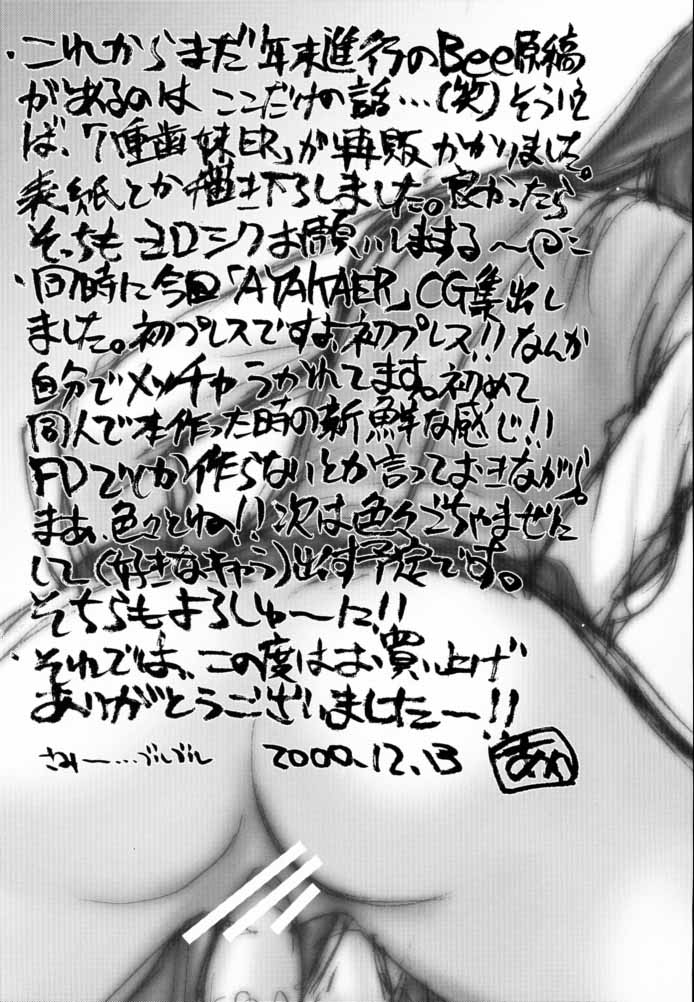 ・これからまだ年末進行のBee原稿
があるのは ここだけの話…(笑)そういえ
ば、「唾歯妹ER」が再販かかりました。
表紙とか描き下ろしました。良かったら
そっちもヨロシクお願いしまする〜
・同時に今回「AYAKAER」CG集出し
ました。初プレスですよ、初プレス!!なんか
自分でメッチャうかれてます。初めて
同人で本作った時の新鮮な感じ!!
FDでしか作らないとか言っておきながら。
まあ、色々とね!!次は色々ごちゃまぜに
して(好きなキャラ)出す予定です。
そちらもよろしゅ〜に!!
・それでは、この度はお買い上げ
ありがとうございましたー!!
さみー…ブルブル 2000.12.13